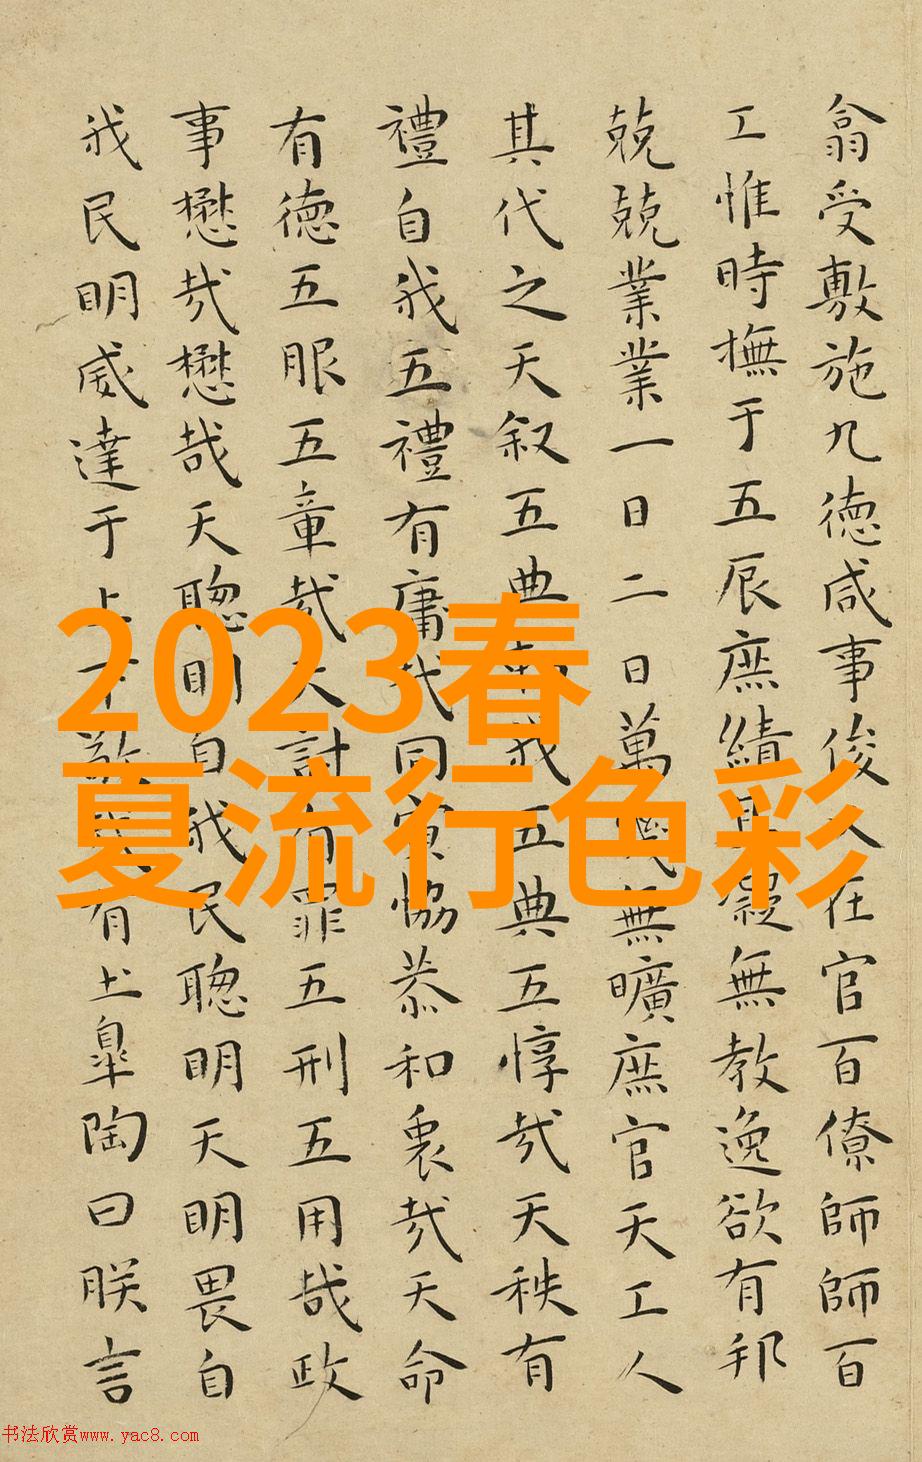 翕受敷施九德咸事俊乂在官百僚師師百
工惟時撫于五辰庶績其凝無教逸欲有邦
兢兢業業一日二日萬幾無曠庶官天工人
其代之天叙五典勑我五典五惇哉天秩有
禮自我五禮有庸哉同寅恊恭和衷哉天命
有德五服五章哉天討有罪五刑五用哉政
事懋哉懋哉天聰明自我民聰明天明畏自
我民明威達于上下敬哉有土皐陶曰朕言
2023春
夏流行色彩
书法欣赏www.yac8.com